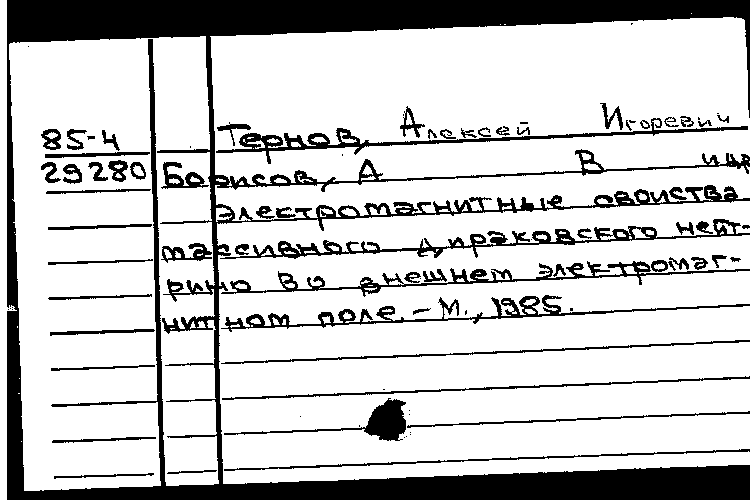 85-4 Тернов, Алексей Игоревич
29280 Борисов, А В и др
Электромагнитные свойства
массивного дираковского нейт-
рино во внешнем электромаг-
нитном поле. - М., 1985.